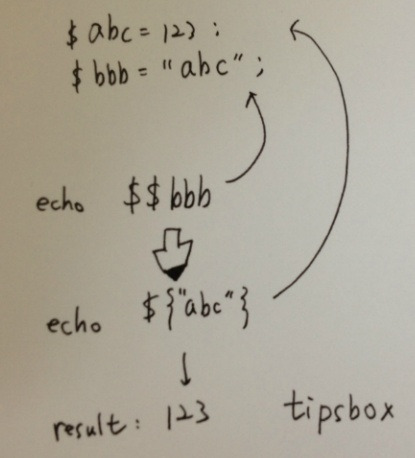 $abc = 123 :
$bbb = "abc" ;
echo $$bbb
echo ${"abc"}
result: 123
tipsbox